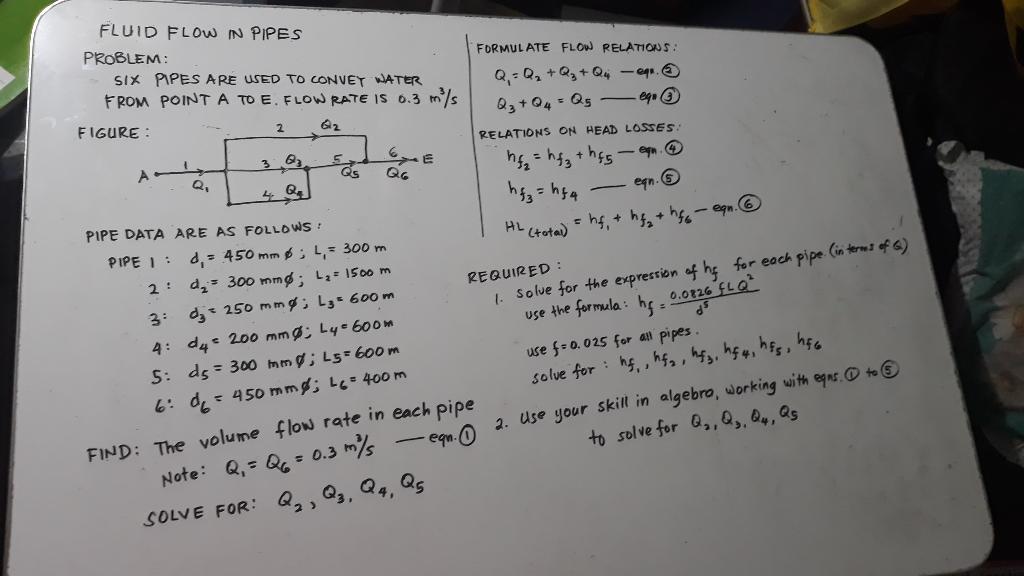 FLUID FLOW IN PIPES
PROBLEM:
SIX PIPES ARE USED TO CONVEY WATER
FROM POINT A TO E. FLOW RATE IS 0.3 m³/s
FIGURE:
2 Q₂
A 1 Q₁ 3 Q₃ 5 Q₅ 6 Q₆ E
4 Q₄
PIPE DATA ARE AS FOLLOWS:
PIPE 1: d₁ = 450 mm ø; L₁ = 300 m
2: d₂ = 300 mm ø; L₂ = 1500 m
3: d₃ = 250 mm ø; L₃ = 600 m
4: d₄ = 200 mm ø; L₄ = 600 m
5: d₅ = 300 mm ø; L₅ = 600 m
6: d₆ = 450 mm ø; L₆ = 400 m
FIND: The volume flow rate in each pipe
Note: Q₁ = Q₆ = 0.3 m³/s — eqn. ①
SOLVE FOR: Q₂, Q₃, Q₄, Q₅
FORMULATE FLOW RELATIONS:
Q₁ = Q₂ + Q₃ + Q₄ — eqn. ②
Q₃ + Q₄ = Q₅ — eqn ③
RELATIONS ON HEAD LOSSES:
hf₂ = hf₃ + hf₅ — eqn. ④
hf₃ = hf₄ — eqn. ⑤
HL (total) = hf₁ + hf₂ + hf₆ — eqn. ⑥
REQUIRED:
1. Solve for the expression of hf for each pipe. (in terms of Q)
use the formula: hf = 0.0826 f L Q² / d⁵
use f = 0.025 for all pipes.
solve for: hf₁, hf₂, hf₃, hf₄, hf₅, hf₆
2. Use your skill in algebra, working with eqns. ① to ⑤
to solve for Q₂, Q₃, Q₄, Q₅